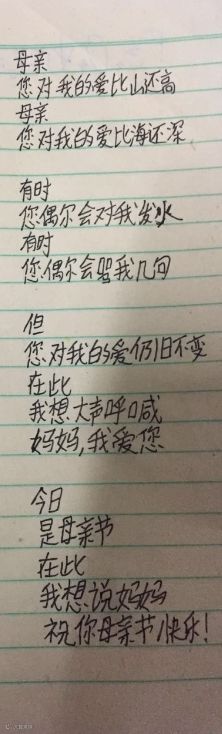 母亲
您对我的爱比山还高
母亲
您对我的爱比海还深
有时
您偶尔会对我发火
有时
您偶尔会骂我几句
但
您对我的爱仍旧不变
在此
我想大声呼喊
妈妈,我爱您
今日
是母亲节
在此
我想说妈妈
祝你母亲节快乐!